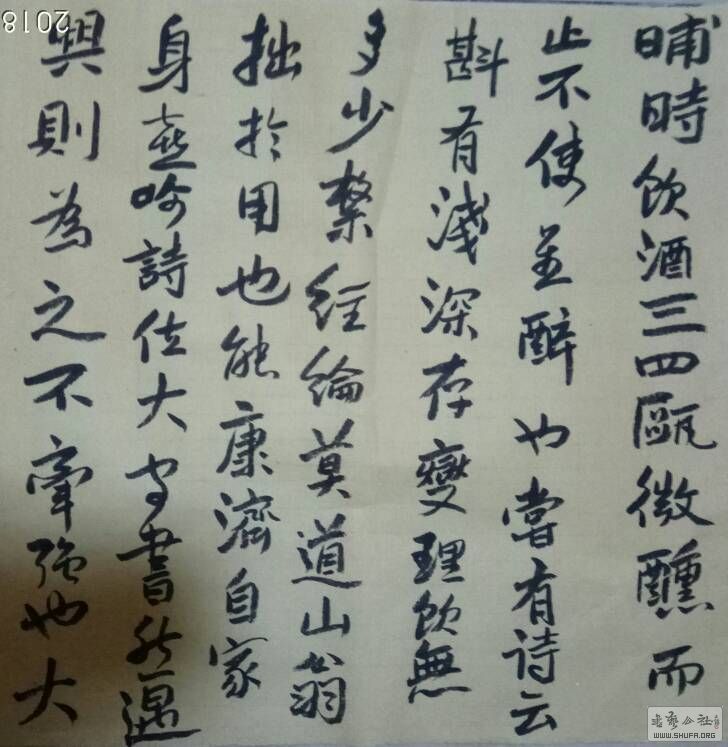 晡時飲酒三四甌微醺而
止不使至醉也嘗有诗云
斟有淺深存變理飲無
多少繫經綸莫道山翁
拙於用也能康濟自家
身喜吟詩作大字書然遇
興則為之不牽強也大
2018
WWW.SHUFA.ORG